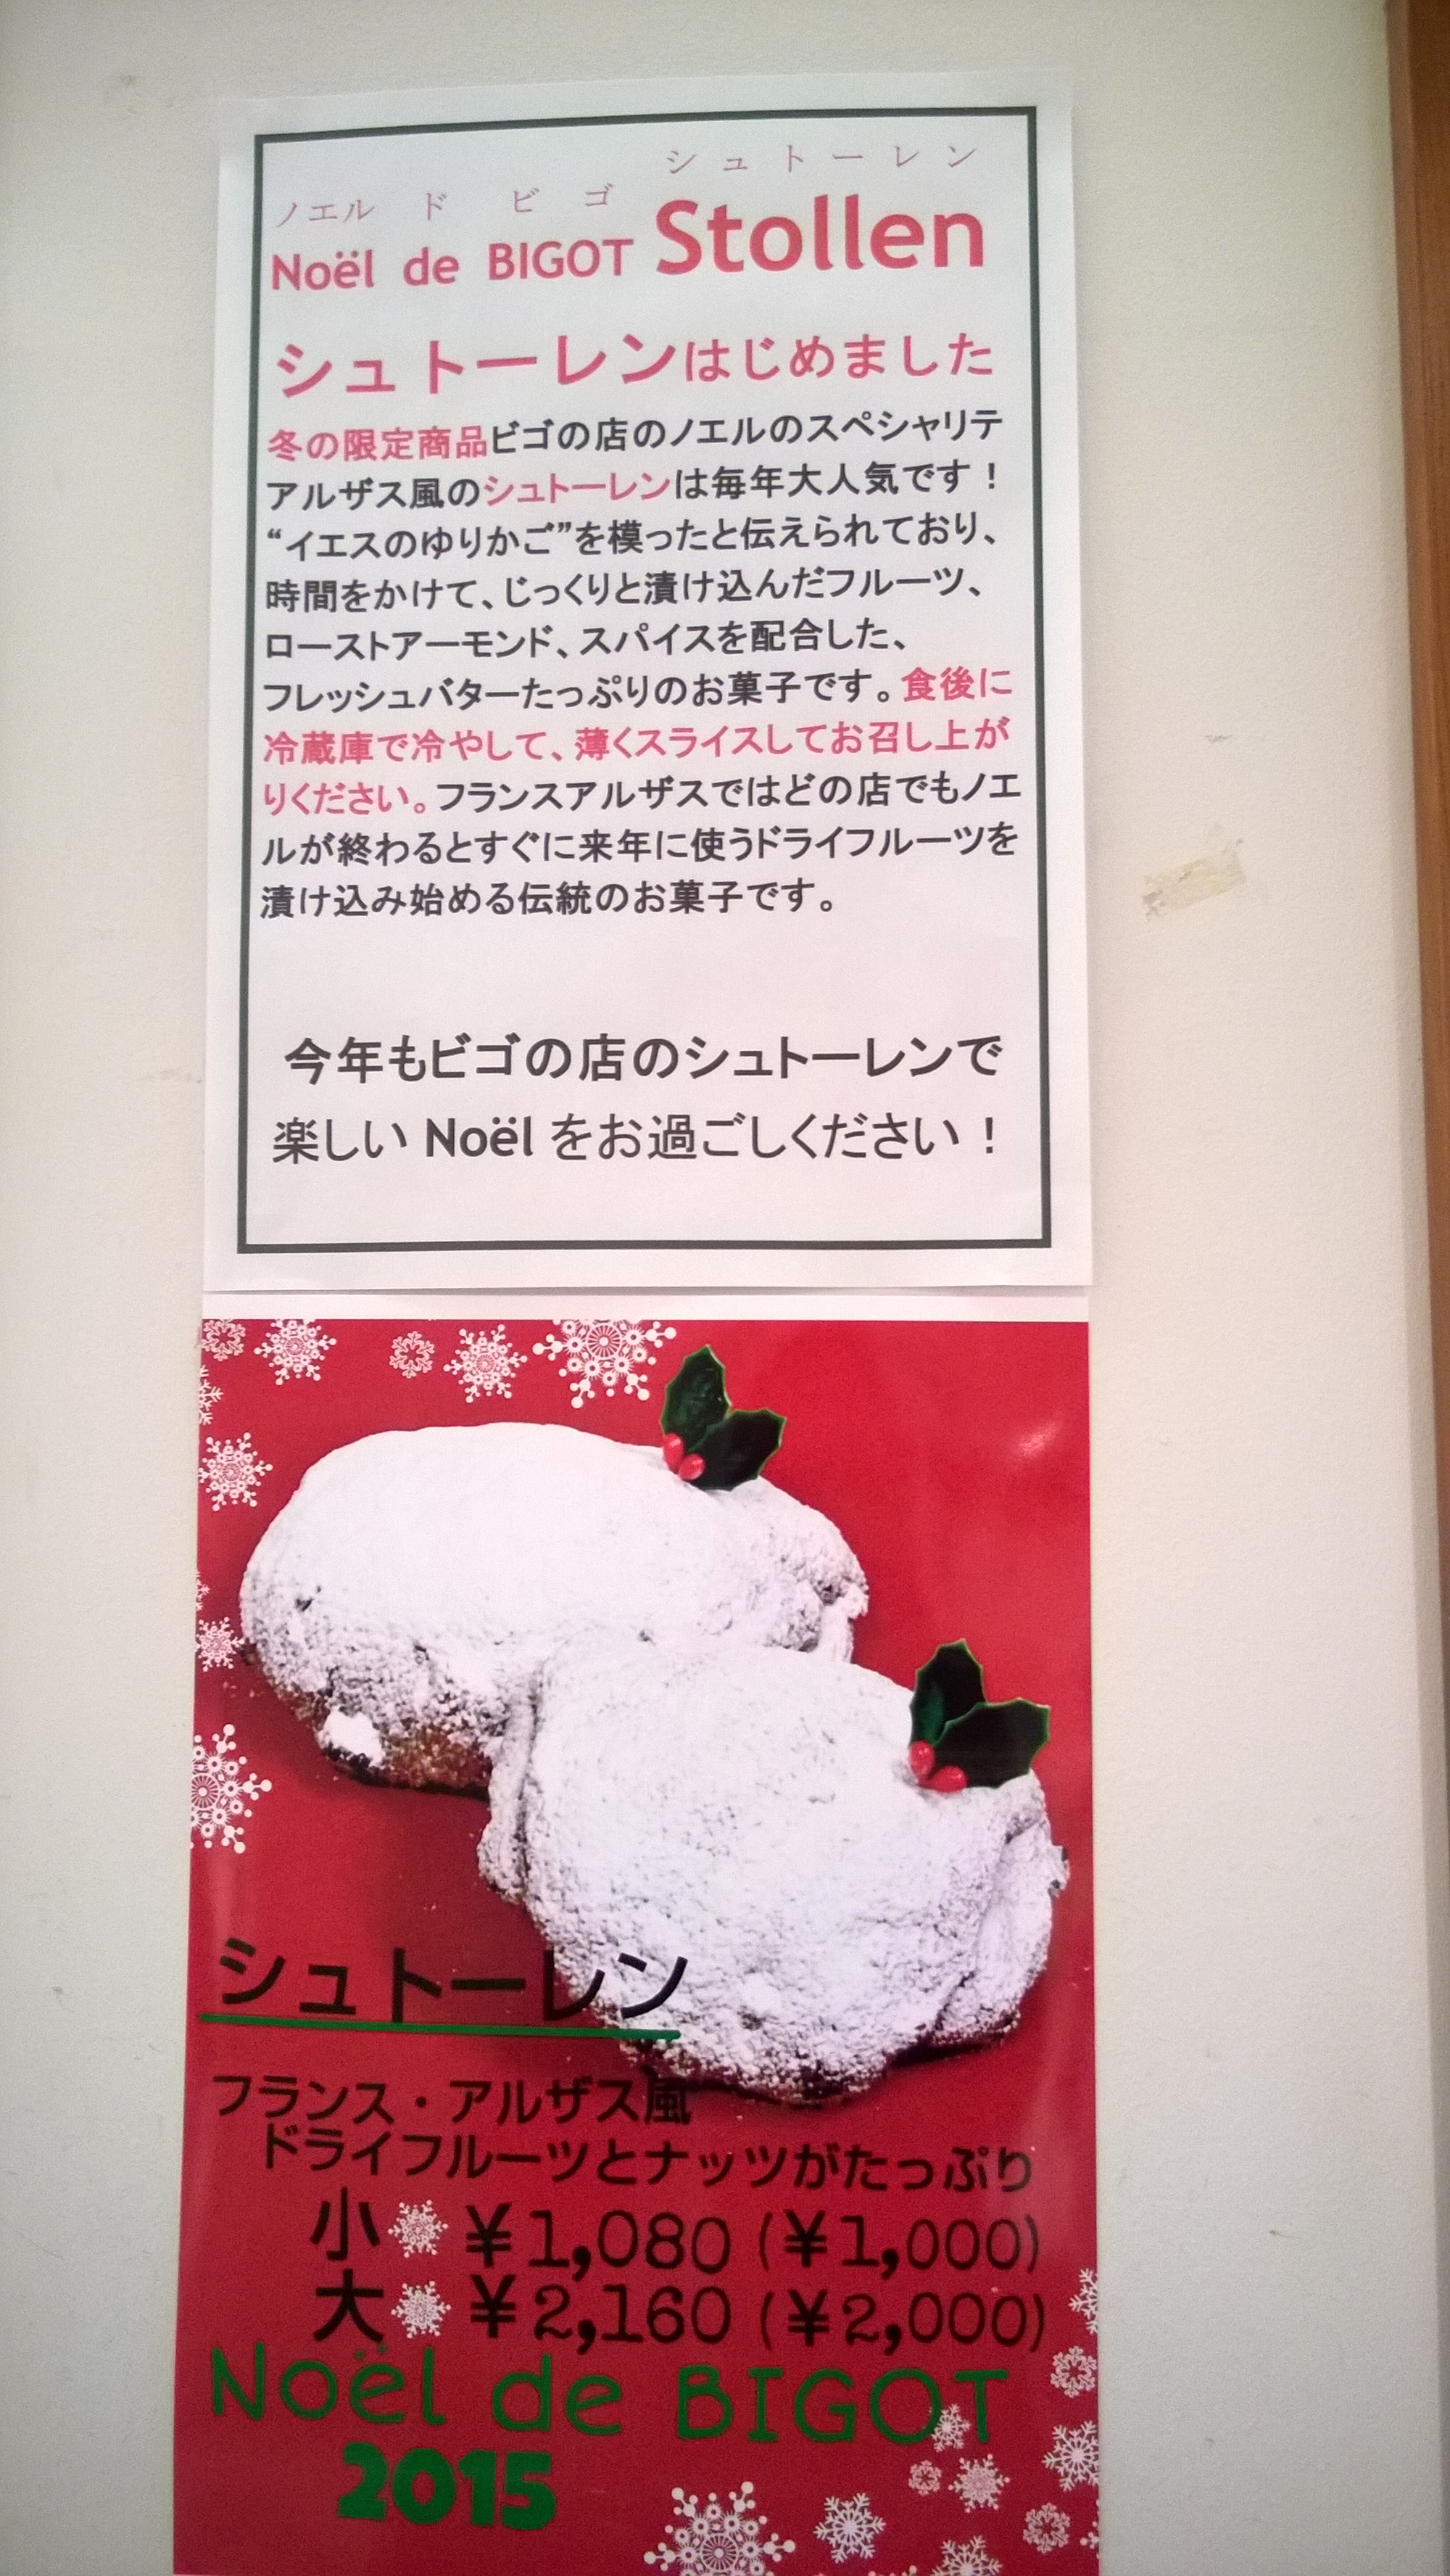 シュトーレン
ノエル ド ビゴ
Noël de BIGOT Stollen
シュトーレンはじめました
冬の限定商品ビゴの店のノエルのスペシャリテ
アルザス風のシュトーレンは毎年大人気です！
“イエスのゆりかご”を模ったと伝えられており、
時間をかけて、じっくりと漬け込んだフルーツ、
ローストアーモンド、スパイスを配合した、
フレッシュバターたっぷりのお菓子です。食後に
冷蔵庫で冷やして、薄くスライスしてお召し上が
りください。フランスアルザスではどの店でもノエ
ルが終わるとすぐに来年に使うドライフルーツを
漬け込み始める伝統のお菓子です。
今年もビゴの店のシュトーレンで
楽しい Noël をお過ごしください！
シュトーレン
フランス・アルザス風
ドライフルーツとナッツがたっぷり
小 ¥1,080 (¥1,000)
大 ¥2,160 (¥2,000)
Noël de BIGOT
2015